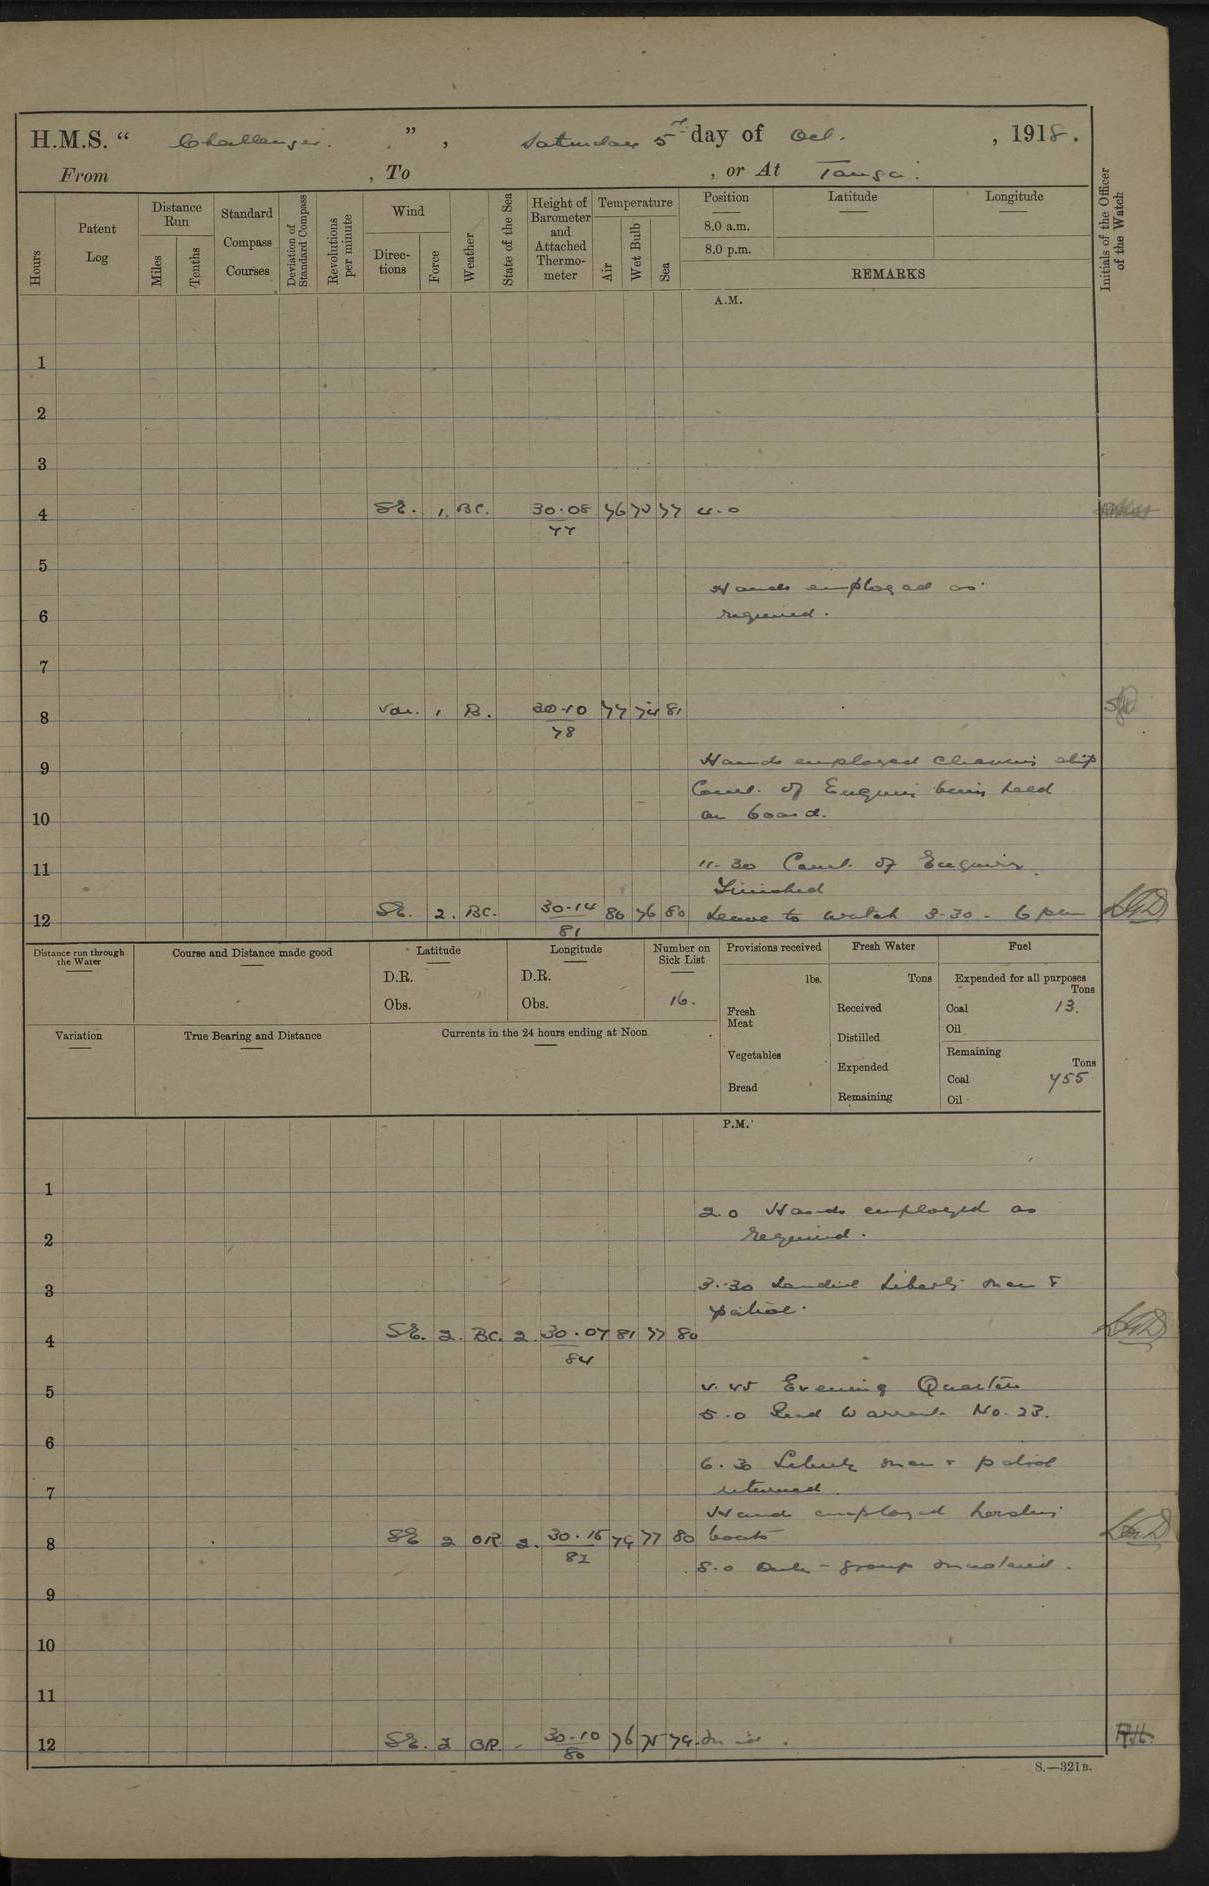 H.M.S. “ Challenger. ” , Saturday 5th day of Oct. , 1918.
From , To , or At Tanga.
Hours
Patent Log
Distance Run
Miles
Tenths
Standard Compass Courses
Deviation of Standard Compass
Revolutions per minute
Wind
Directions
Force
Weather
State of the Sea
Height of Barometer and Attached Thermometer
Temperature
Air
Wet Bulb
Sea
Position
8.0 a.m.
8.0 p.m.
Latitude
Longitude
REMARKS
Initials of the Officer of the Watch
A.M.
1
2
3
4 SE. 1. BC. 30.08 76 70 77 4.0
77
5
Hands employed as
6 required.
7
8 Var. 1 B. 30.10 77 74 81
78
9 Hands employed cleaning ship
Court of Enquiry being held
10 on board.
11 11-30 Court of Enquiry
Finished
12 SE. 2. BC. 30.14 80 76 80 Leave to watch 3-30 - 6 pm
81
Distance run through the Water
Course and Distance made good
Latitude
D.R.
Obs.
Longitude
D.R.
Obs.
Number on Sick List
16.
Provisions received
lbs.
Fresh Meat
Vegetables
Bread
Fresh Water
Tons
Received
Distilled
Expended
Remaining
Fuel
Expended for all purposes
Tons
Coal 13.
Oil
Remaining
Tons
Coal 755
Oil
Variation
True Bearing and Distance
Currents in the 24 hours ending at Noon
P.M.
1
2.0 Hands employed as
2 required.
3 3.30 Landed Liberty men &
patrol.
4 SE. 2. BC. 2. 30.07 81 77 80
84
5 4.45 Evening Quarters
5.0 Read Warrant No. 23.
6
6.30 Liberty men & patrol
7 returned.
Hands employed hoisting
8 SE 2 OR 2. 30.15 79 77 80 boats
82
8.0 Out-group mustered.
9
10
11
12 SE. 2 OR. - 30.10 76 75 79.
80
S.—321B.